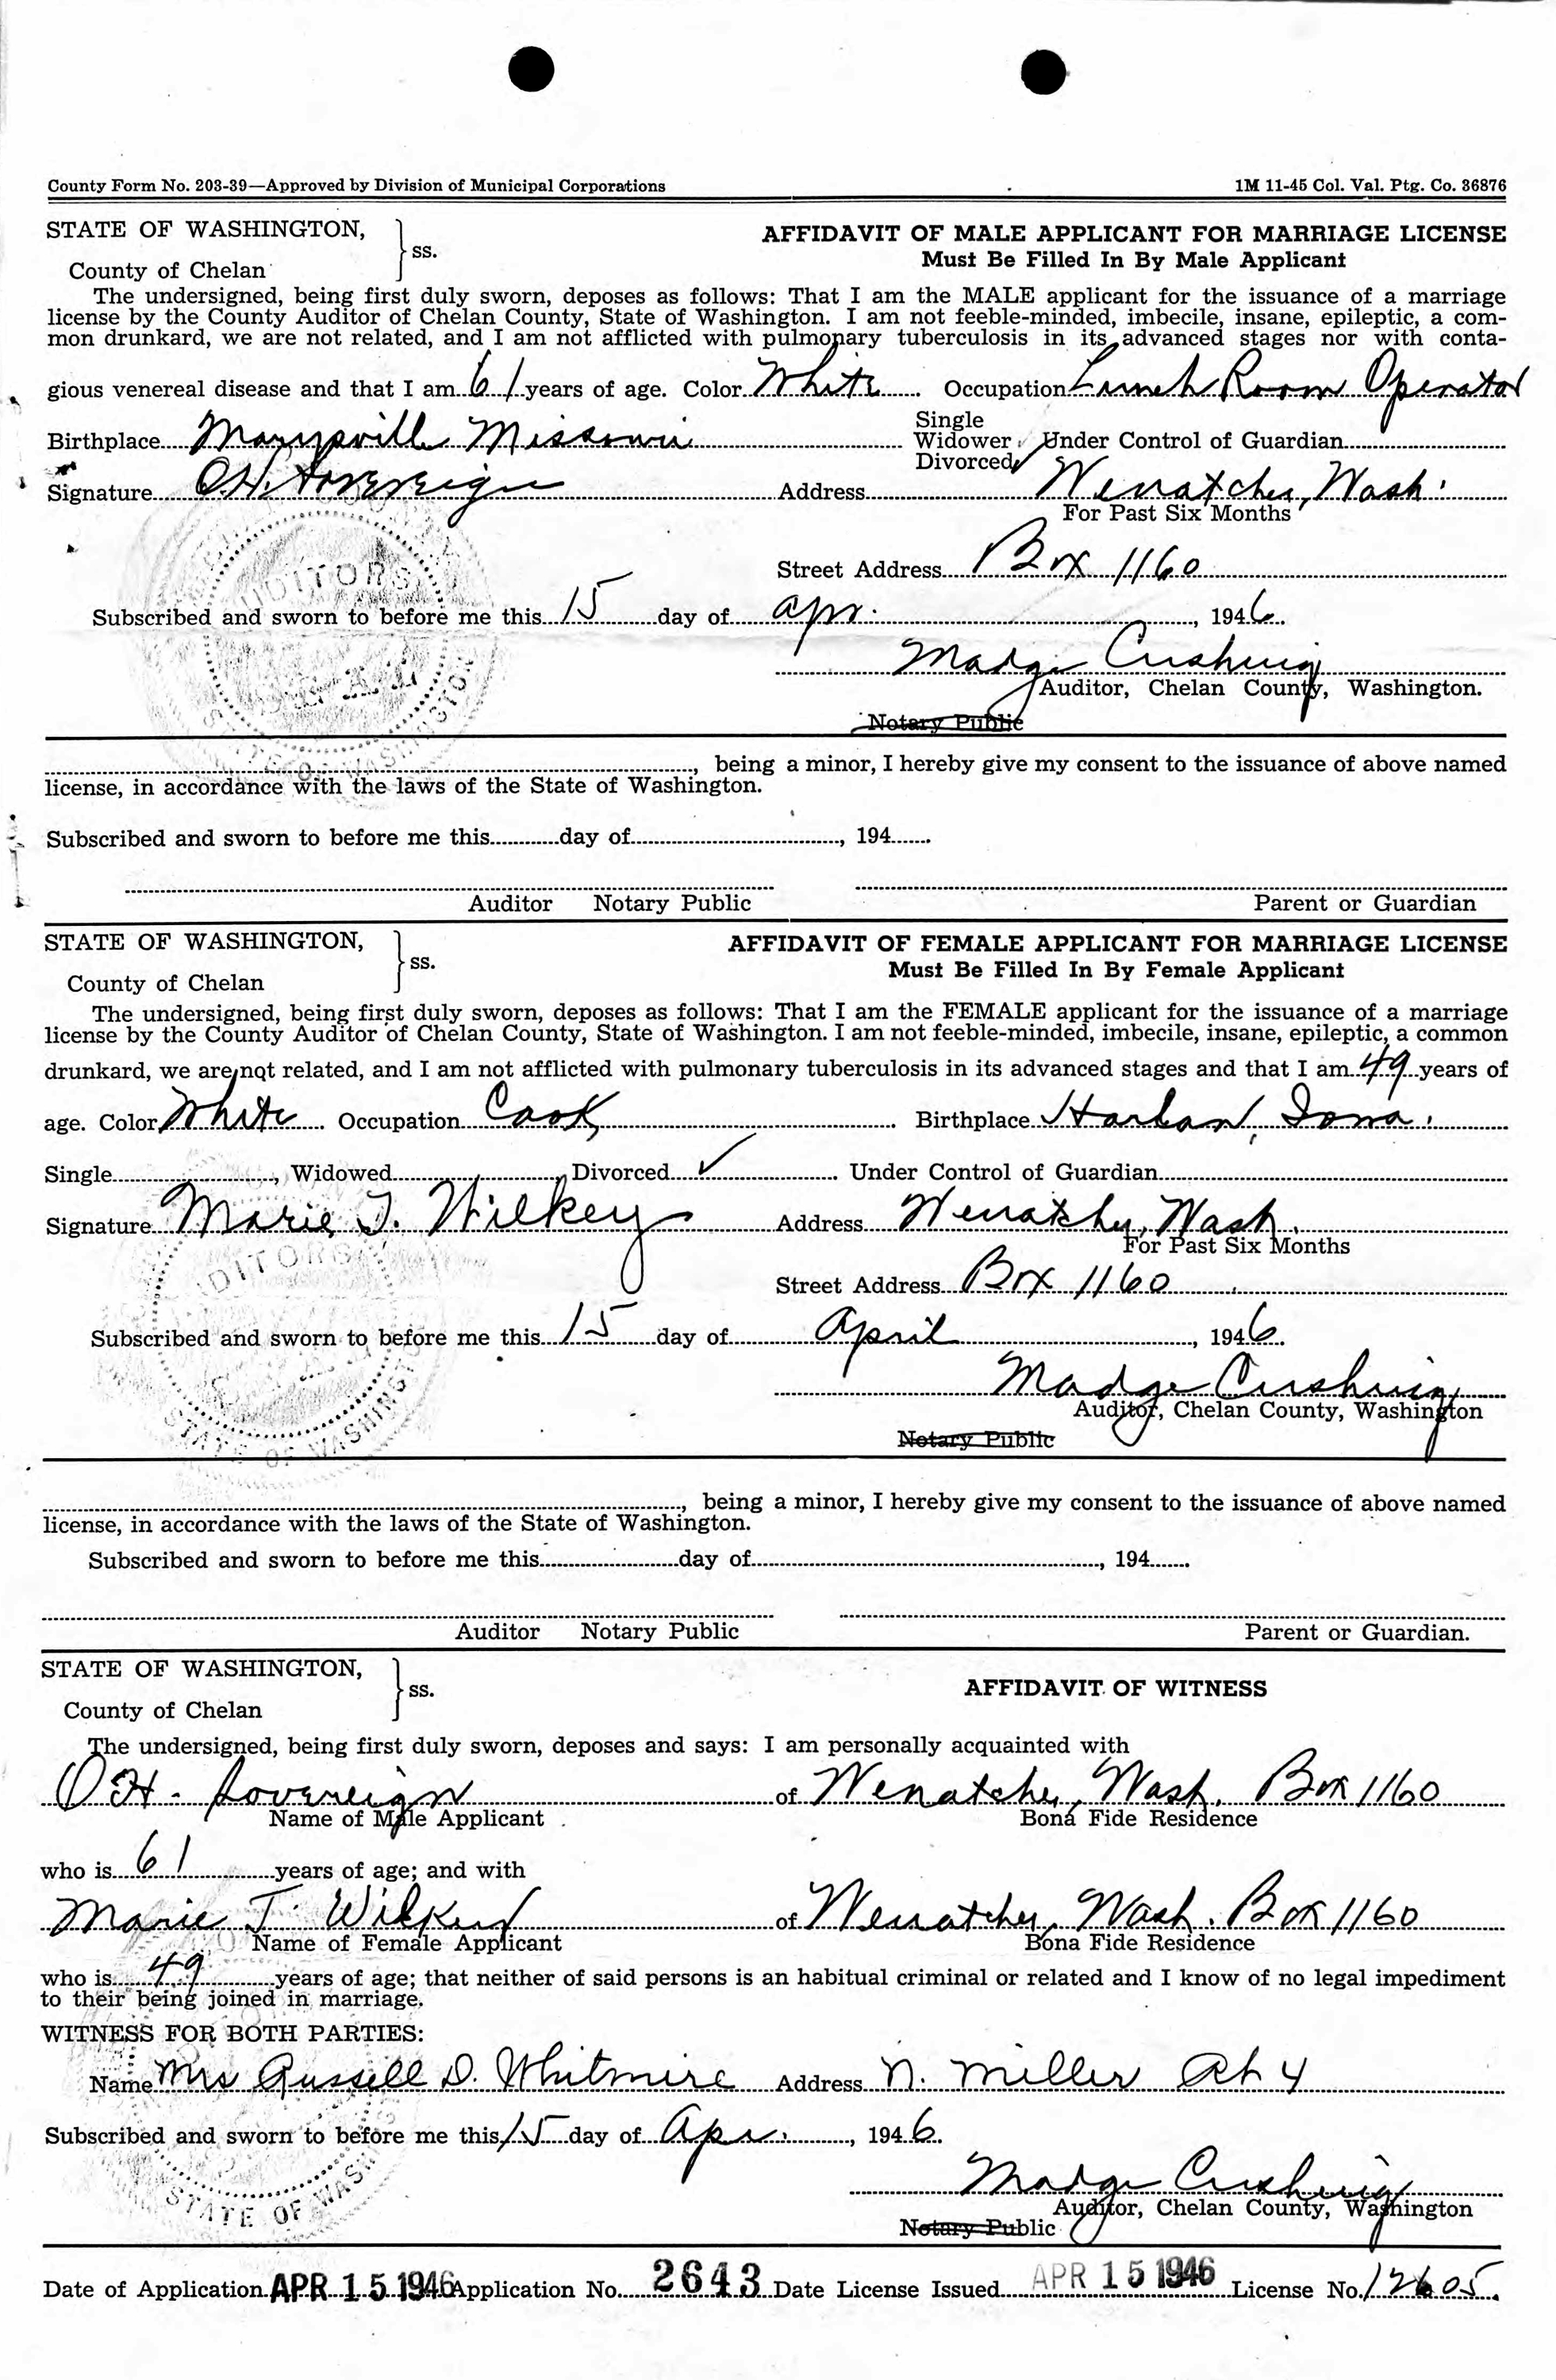 County Form No. 203-39—Approved by Division of Municipal Corporations 1M 11-45 Col. Val. Ptg. Co. 36876
STATE OF WASHINGTON, ss. AFFIDAVIT OF MALE APPLICANT FOR MARRIAGE LICENSE
County of Chelan Must Be Filled In By Male Applicant
The undersigned, being first duly sworn, deposes as follows: That I am the MALE applicant for the issuance of a marriage
license by the County Auditor of Chelan County, State of Washington. I am not feeble-minded, imbecile, insane, epileptic, a com-
mon drunkard, we are not related, and I am not afflicted with pulmonary tuberculosis in its advanced stages nor with conta-
gious venereal disease and that I am 61 years of age. Color White Occupation Lunch Room Operator
Birthplace Marysville Missouri Single Widower Divorced ✓ Under Control of Guardian
Signature O.H. Sovereign Address Wenatchee, Wash.
For Past Six Months
Street Address Box 1160
Subscribed and sworn to before me this 15 day of Apr., 1946.
Madge Cushing
Auditor, Chelan County, Washington.
Notary Public
AUDITORS
SEAL
STATE OF WASHINGTON
, being a minor, I hereby give my consent to the issuance of above named
license, in accordance with the laws of the State of Washington.
Subscribed and sworn to before me this day of , 194
Auditor Notary Public Parent or Guardian
STATE OF WASHINGTON, ss. AFFIDAVIT OF FEMALE APPLICANT FOR MARRIAGE LICENSE
County of Chelan Must Be Filled In By Female Applicant
The undersigned, being first duly sworn, deposes as follows: That I am the FEMALE applicant for the issuance of a marriage
license by the County Auditor of Chelan County, State of Washington. I am not feeble-minded, imbecile, insane, epileptic, a common
drunkard, we are not related, and I am not afflicted with pulmonary tuberculosis in its advanced stages and that I am 49 years of
age. Color White Occupation Cook Birthplace Harlan, Iowa.
Single , Widowed , Divorced ✓ Under Control of Guardian
Signature Marie T. Wilkey Address Wenatchee, Wash.
For Past Six Months
Street Address Box 1160
Subscribed and sworn to before me this 15 day of April , 1946.
Madge Cushing
Auditor, Chelan County, Washington
Notary Public
AUDITORS
STATE OF WASHINGTON
, being a minor, I hereby give my consent to the issuance of above named
license, in accordance with the laws of the State of Washington.
Subscribed and sworn to before me this day of , 194
Auditor Notary Public Parent or Guardian.
STATE OF WASHINGTON, ss. AFFIDAVIT OF WITNESS
County of Chelan
The undersigned, being first duly sworn, deposes and says: I am personally acquainted with
O H. Sovereign of Wenatchee, Wash. Box 1160
Name of Male Applicant Bona Fide Residence
who is 61 years of age; and with
Marie T. Wilkey of Wenatchee, Wash. Box 1160
Name of Female Applicant Bona Fide Residence
who is 49 years of age; that neither of said persons is an habitual criminal or related and I know of no legal impediment
to their being joined in marriage.
WITNESS FOR BOTH PARTIES:
Name Mrs Russell D. Whitmire Address N. Miller Rt 4
Subscribed and sworn to before me this 15 day of Apr. , 1946.
Madge Cushing
Auditor, Chelan County, Washington
Notary Public
STATE OF WASH
Date of Application APR 15 1946 Application No. 2643 Date License Issued APR 15 1946 License No. 12605.